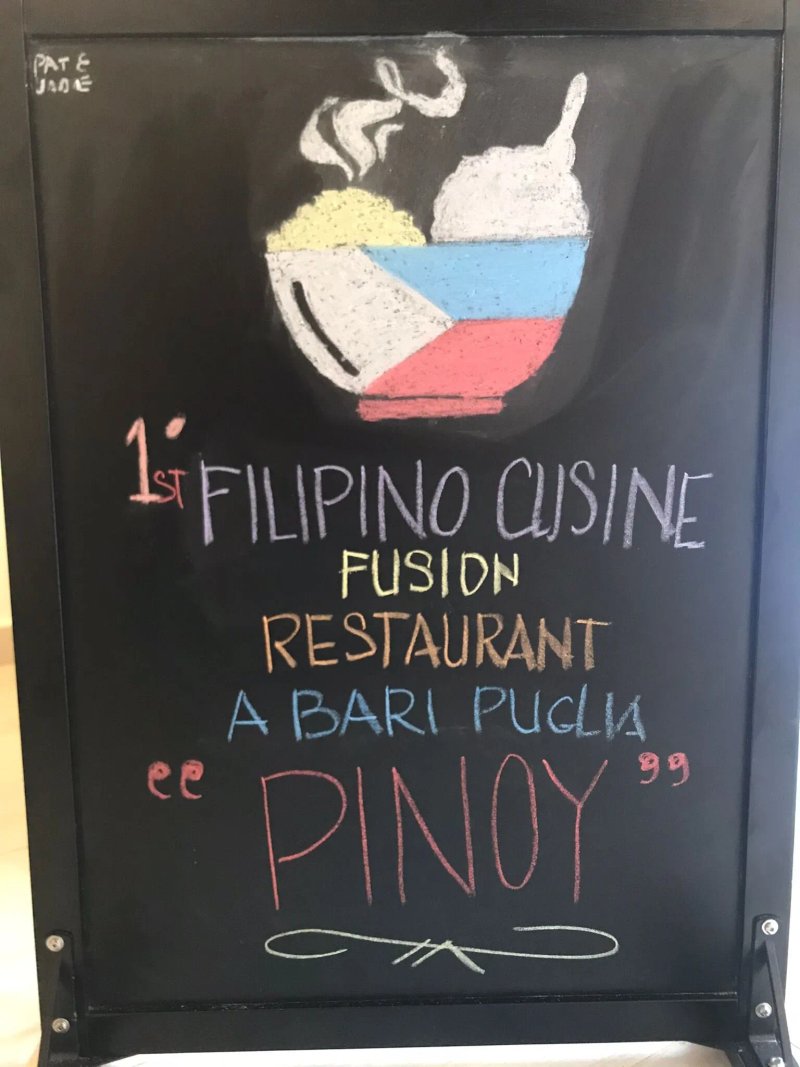 PAT E
JADE
1° ST FILIPINO CUSINE
FUSION
RESTAURANT
A BARI PUGLIA
“ PINOY ”